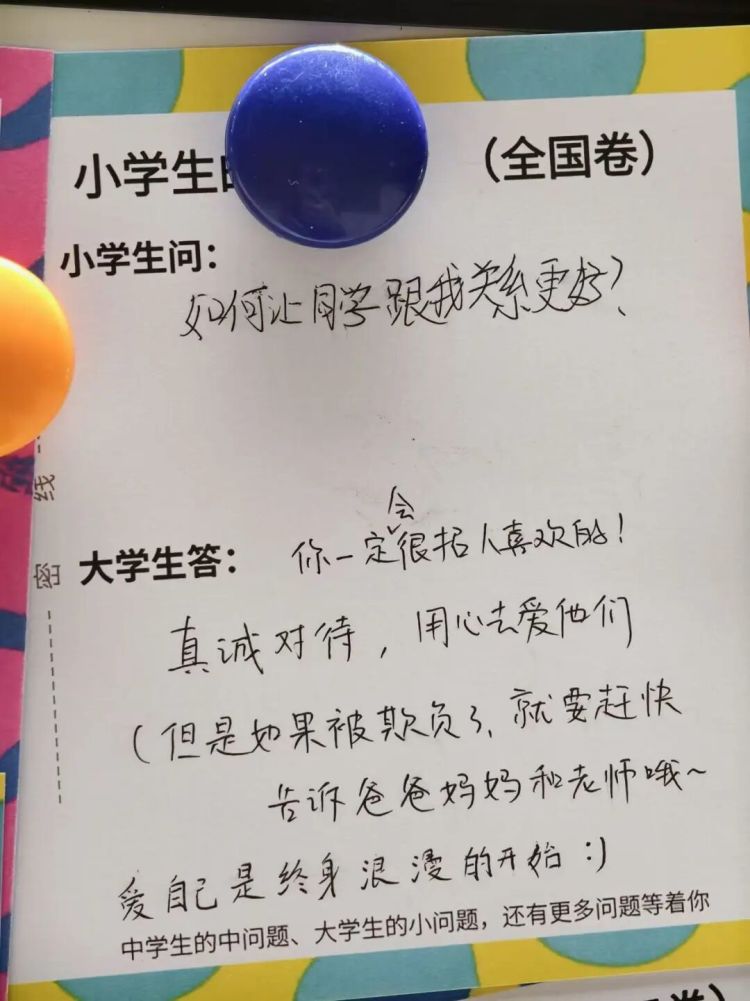 小学生的 （全国卷）
小学生问：
如何让同学跟我关系更好？
大学生答：
你一定会很招人喜欢的！
真诚对待，用心去爱他们
（但是如果被欺负了、就要赶快
告诉爸爸妈妈和老师哦~
爱自己是终身浪漫的开始：)
中学生的中问题、大学生的小问题，还有更多问题等着你
线
密